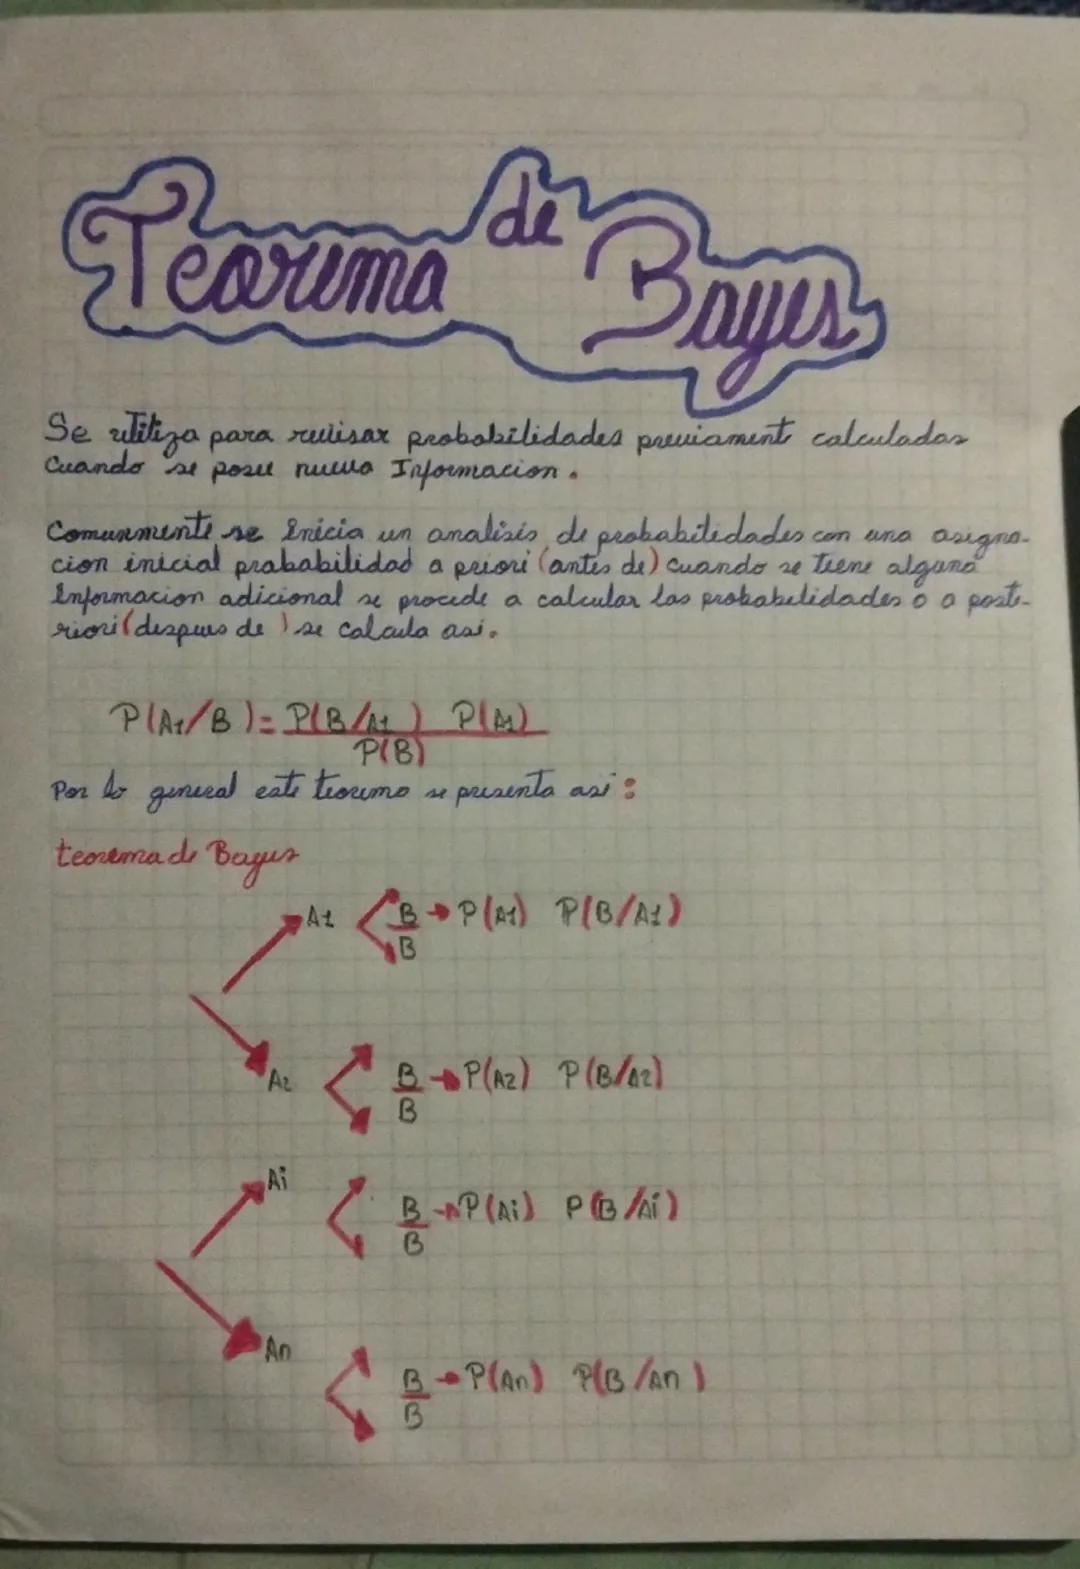 Teorema de Bayes
Se utiliza para revisar probabilidades previamente calculadas
Cuando se posee nueva Informacion.
Comunmente se Inicia un analisis de probabilidades con una asigna-
cion inicial probabilidad a priori (antes de) Cuando se tiene alguna
Informacion adicional se procede a calcular las probabilidades o a poste-
riori (despues de) se calcula asi.
P(A1/B) = P(B/A1) P(A1)
P(B)
Por lo general este teorema se presenta asi:
teorema de Bayes
A1 B → P(A1) P(B/A1)
B
A2 B → P(A2) P(B/A2)
B
Ai B → P(Ai) P(B/Ai)
B
An B → P(An) P(B/An)
B